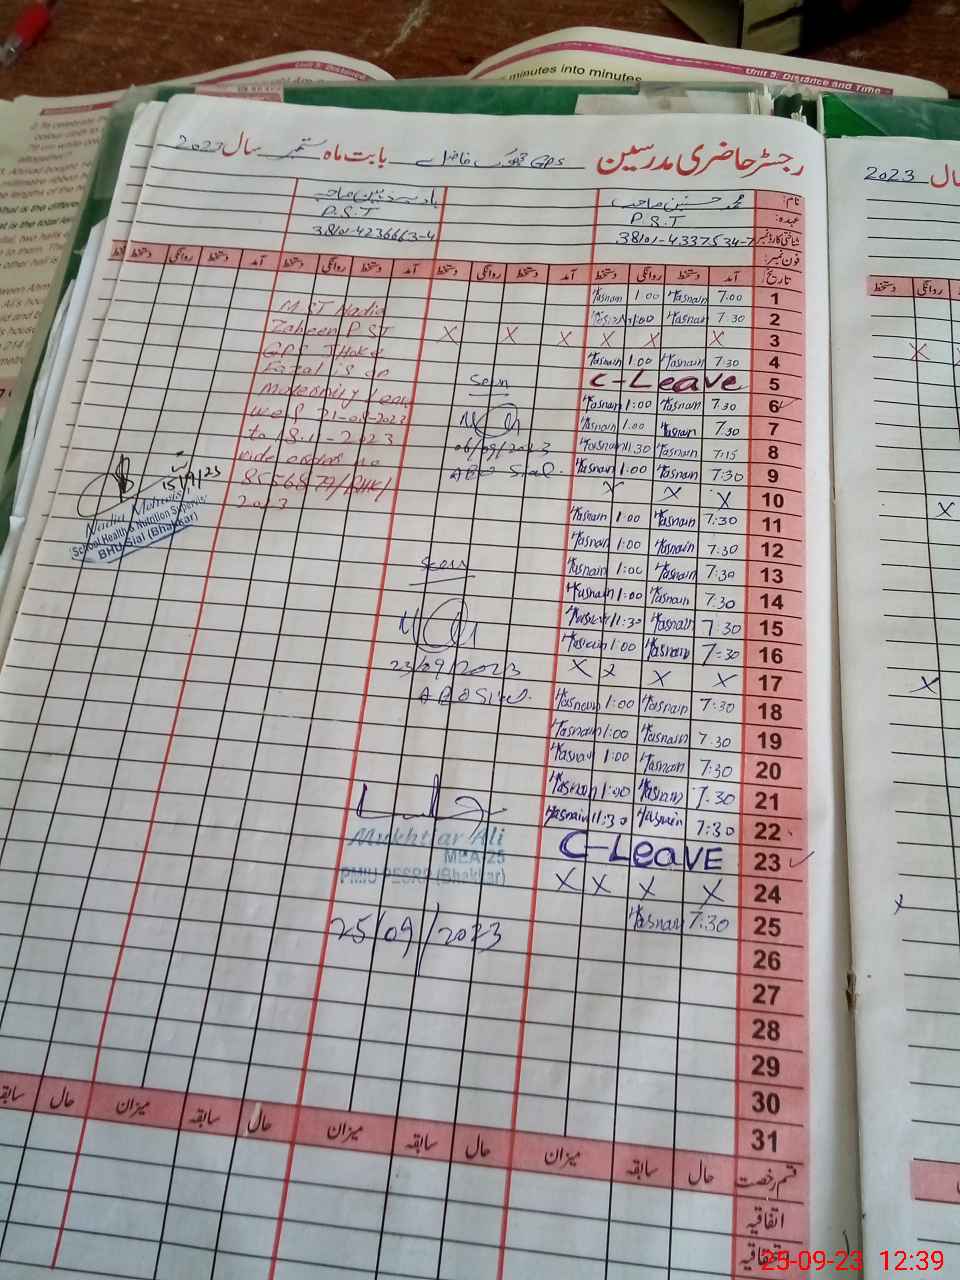 Unit 5: Distance
minutes into minutes
Unit 5: Distance and Time
رجسٹر حاضری مدرسین GPS بابت ماہ ستمبر سال 2023
2023
نام:
عہدہ: P.S.T P.S.T
شناختی کارڈ نمبر 38101-4337534-7 38101-4236663-4
فون نمبر:
تاریخ: آمد دستخط روانگی دستخط آمد دستخط روانگی دستخط آمد دستخط روانگی دستخط
دستخط روانگی
1 7:00 Hasnain 1:00 Hasnain
2 7:30 Hasnain 1:00 Hasnain
3 X X X X X X
4 7:30 Hasnain 1:00 Hasnain
5 C-Leave
6 7:30 Hasnain 1:00 Hasnain
7 7:30 Hasnain 1:00 Hasnain
8 7:15 Hasnain 11:30 Hasnain
9 7:30 Hasnain 1:00 Hasnain
10 X X X
11 7:30 Hasnain 1:00 Hasnain
12 7:30 Hasnain 1:00 Hasnain
13 7:30 Hasnain 1:00 Hasnain
14 7:30 Hasnain 1:00 Hasnain
15 7:30 Hasnain 11:30 Hasnain
16 7:30 Hasnain 1:00 Hasnain
17 X X X X
18 7:30 Hasnain 1:00 Hasnain
19 7:30 Hasnain 1:00 Hasnain
20 7:30 Hasnain 1:00 Hasnain
21 7:30 Hasnain 1:00 Hasnain
22 7:30 Hasnain 11:30 Hasnain
23 C-Leave
24 X X X X
25 7:30 Hasnain
26
27
28
29
30
31
Seen
06/09/2023
AEO Sial.
Seen
23/09/2023
AEO Sial.
Mukhtiar Ali
MEA-25
(Bhakkar)
25/09/2023
MST Nadia
Zaheen PST
GPS
Fazal is on
Maternity Leave
w.e.f 21-08-2023
to
vide order no
2023
15/9/23
Nadia
School Health & Nutrition Supervisor
BHU Sial (Bhakkar)
قسم رخصت حال سابقہ میزان حال سابقہ میزان حال سابقہ میزان حال سابقہ
اتفاقیہ
استحقاقیہ
25-09-23 12:39